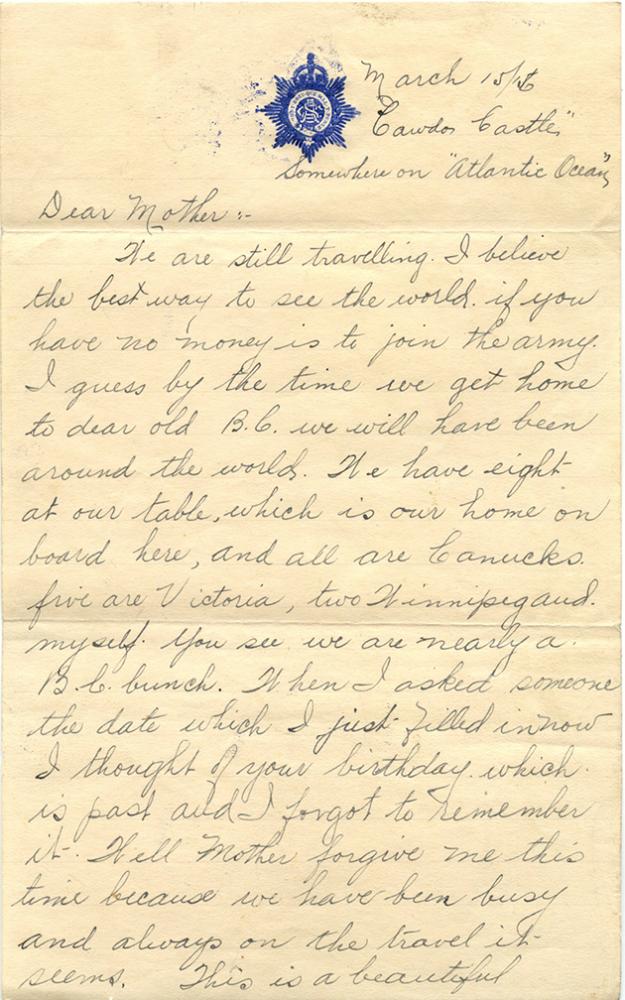 March 15/16
"Cawdor Castle"
Somewhere on "Atlantic Ocean"
Dear Mother:-
We are still travelling. I believe
the best way to see the world. if you
have no money is to join the army.
I guess by the time we get home
to dear old B.C. we will have been
around the world. We have eight
at our table, which is our home on
board here, and all are Canucks.
five are Victoria, two Winnipeg and.
myself. You see we are nearly a.
B.C. bunch. When I asked someone
the date which I just filled in now
I thought of your birthday. which.
is past and I forgot to remember
it. Well Mother forgive me this
time because we have been busy
and always on the travel it
seems. This is a beautiful